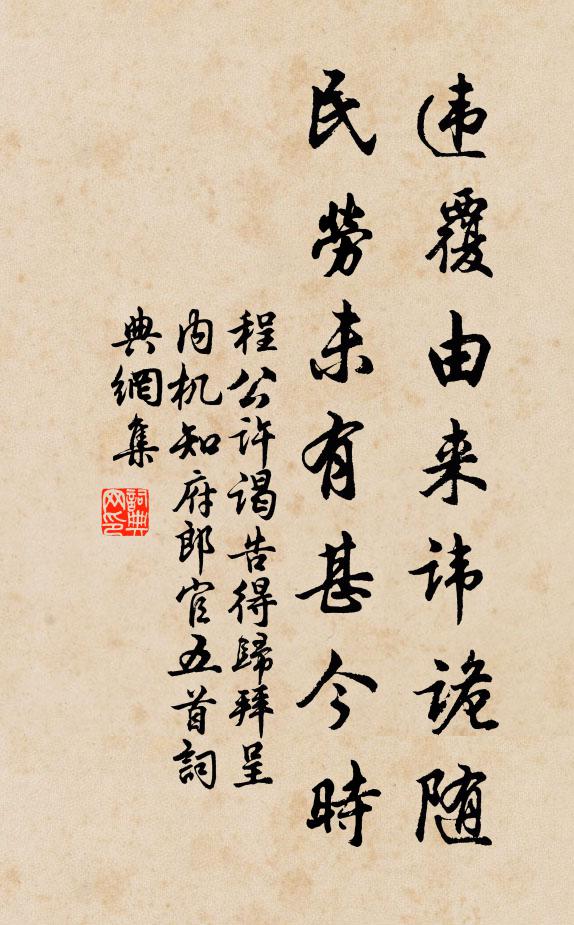 违覆由来讳诡随
民勞未有甚今時
程公许谒告得歸拜呈
内机知府郎官五首詞
典網集
詞典
网印